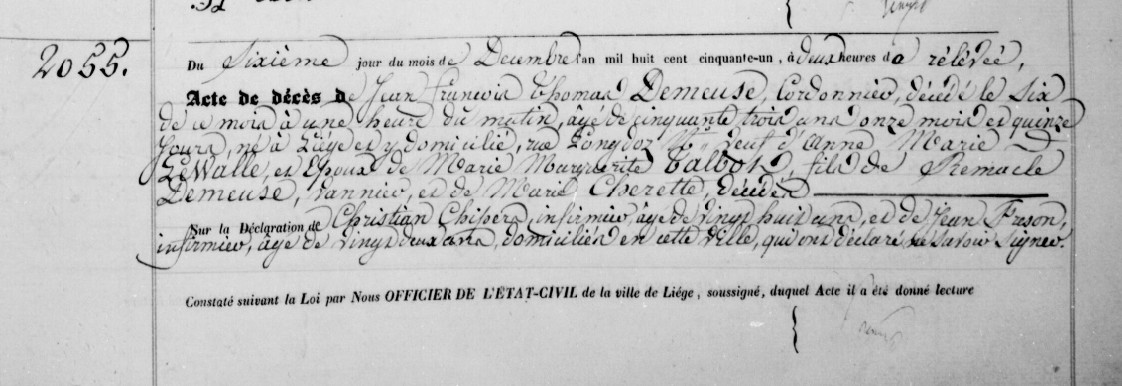 2055.
Du Sixième jour du mois de Decembre an mil huit cent cinquante-un, à deux heures de rélévée,
Acte de décès de Jean françois Thomas Demeuse, Cordonnier, décédé le Six
de ce mois à une heure du matin, âgé de cinquante trois ans onze mois et quinze
jours, né à Liége et y domicilié, rue Longdoz, Veuf d'Anne Marie
LeWalle, et Epoux de Marie Marguerite Talbot, fils de Remacle
Demeuse, Vannier, et de Marie Cherette, décédés
Sur la Déclaration de Christian Chispers, infirmier, âgé de Vingt huit ans, et de Jean Frison,
infirmier, âgé de Vingt deux ans, domiciliés en cette Ville, qui ont déclaré ne Savoir Signer.
Constaté suivant la Loi par Nous OFFICIER DE L'ÉTAT-CIVIL de la ville de Liége, soussigné, duquel Acte il a été donné lecture